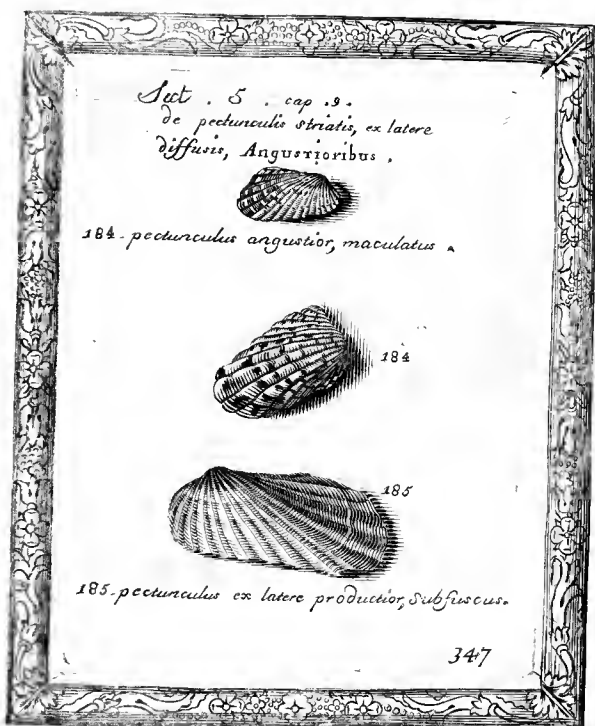 Sect . 5 . cap .9.
de pectunculis striatis, ex latere
diffusis, Angustioribus .
184-pectunculus angustior, maculatus .
184
185
185-pectunculus ex latere productior, Subfuscus.
347